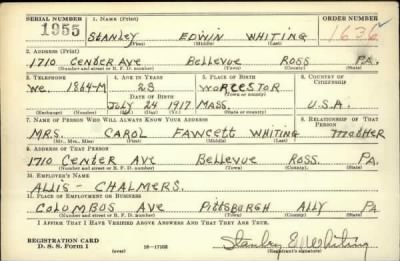 SERIAL NUMBER 1. NAME (Print) ORDER NUMBER
1955 STANLEY EDWIN WHITING 1636
(First) (Middle) (Last)
2. ADDRESS (Print)
1710 CENTER AVE BELLEVUE ROSS PA.
(Number and street or R. F. D. number) (Town) (County) (State)
3. TELEPHONE 4. AGE IN YEARS 5. PLACE OF BIRTH 6. COUNTRY OF CITIZENSHIP
WE. 1864-M 23 WORCESTOR
DATE OF BIRTH (Town or county)
JULY 24 1917 MASS. U.S.A.
(Exchange) (Number) (Mo.) (Day) (Yr.) (State or country)
7. NAME OF PERSON WHO WILL ALWAYS KNOW YOUR ADDRESS 8. RELATIONSHIP OF THAT PERSON
MRS. CAROL FAWCETT WHITING MOTHER
(Mr., Mrs., Miss) (First) (Middle) (Last)
9. ADDRESS OF THAT PERSON
1710 CENTER AVE BELLEVUE ROSS. PA.
(Number and street or R. F. D. number) (Town) (County) (State)
10. EMPLOYER'S NAME
ALLIS - CHALMERS.
11. PLACE OF EMPLOYMENT OR BUSINESS
COLUMBUS AVE PITTSBURGH ALLY PA
(Number and street or R. F. D. number) (Town) (County) (State)
I AFFIRM THAT I HAVE VERIFIED ABOVE ANSWERS AND THAT THEY ARE TRUE.
REGISTRATION CARD
D. S. S. Form 1 (over) 16-17105 Stanley E. Whiting
(Registrant's signature)